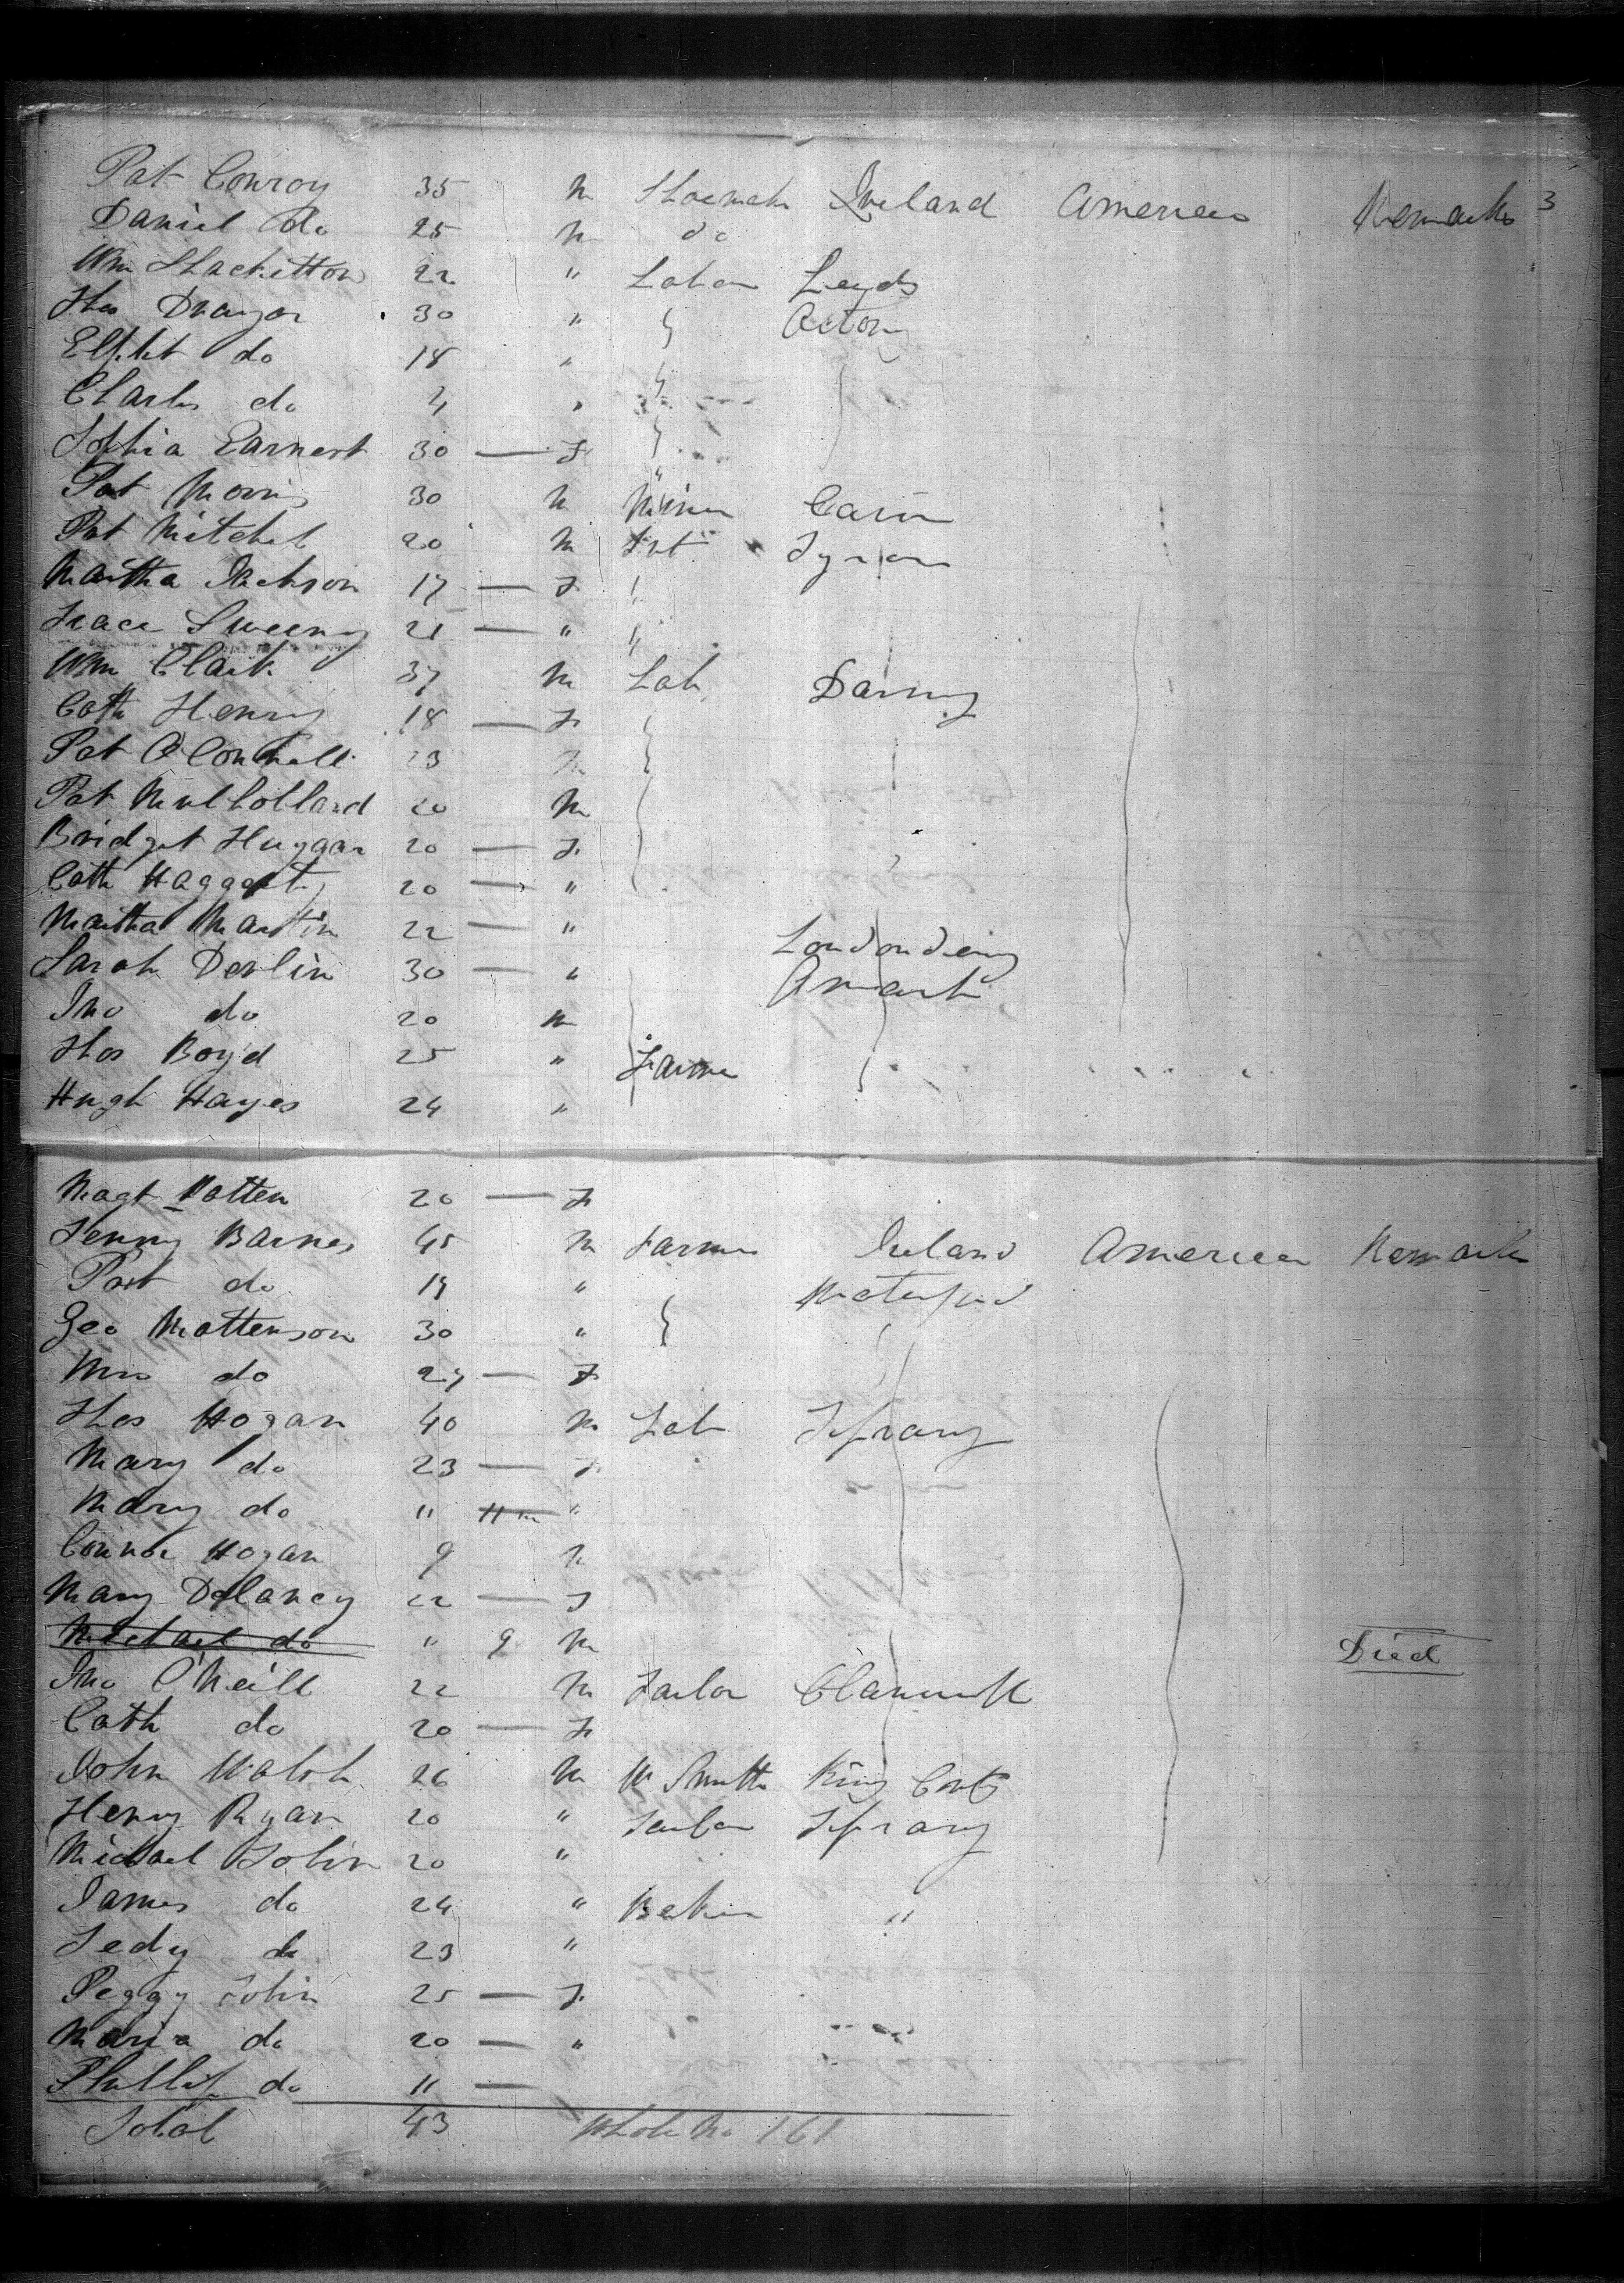 Pat Conroy 35 M Shoemak Ireland America Remarks 3
Daniel do 25 M do
Wm Shackitton 22 " Labor Leeds
Thos Drayor 30 "
Elpht do 18 "
Charls do 4 "
Sophia Earnest 30 — F
Pat Morris 30 M Miner
Pat Mitchel 20 M Tyron
Martha Jackson 17 — F
Grace Sweeny 21 — " "
Wm Clark 37 M Lab
Cath Henry 18 — F
Pat O'Connell 23 M
Pat Mulholland 20 M
Bridget Huggan 20 — F
Cath Haggerty 20 — "
Martha Martin 22 — " Londonderry
Sarah Devlin 30 — "
Jno do 20 M
Thos Boyd 25 " Farmer
Hugh Hayes 24 "
Magt Patten 20 — F
Jenny Barnes 45 M Farmer Ireland America Remarks
Pat do 19 " Waterford
Geo Mattenson 30 "
Mrs do 27 — F
Thos Hogan 40 M Lab Tiprary
Mary do 23 — F
Mary do " 11 m "
Connor Hogan 9 M
Mary Delaney 22 — F
Michael do " 9 M Died
Jno O'Neill 22 M Tailor
Cath do 20 — F
John Walsh 26 M W Smith King Cont
Henry Ryan 20 " Tailor Tiprary
Michael Tobin 20 "
James do 24 " Baker "
Tedy do 23 "
Peggy Tobin 25 — F
Maria do 20 — "
Phillip do 11 —
Total 43 Whole No 161